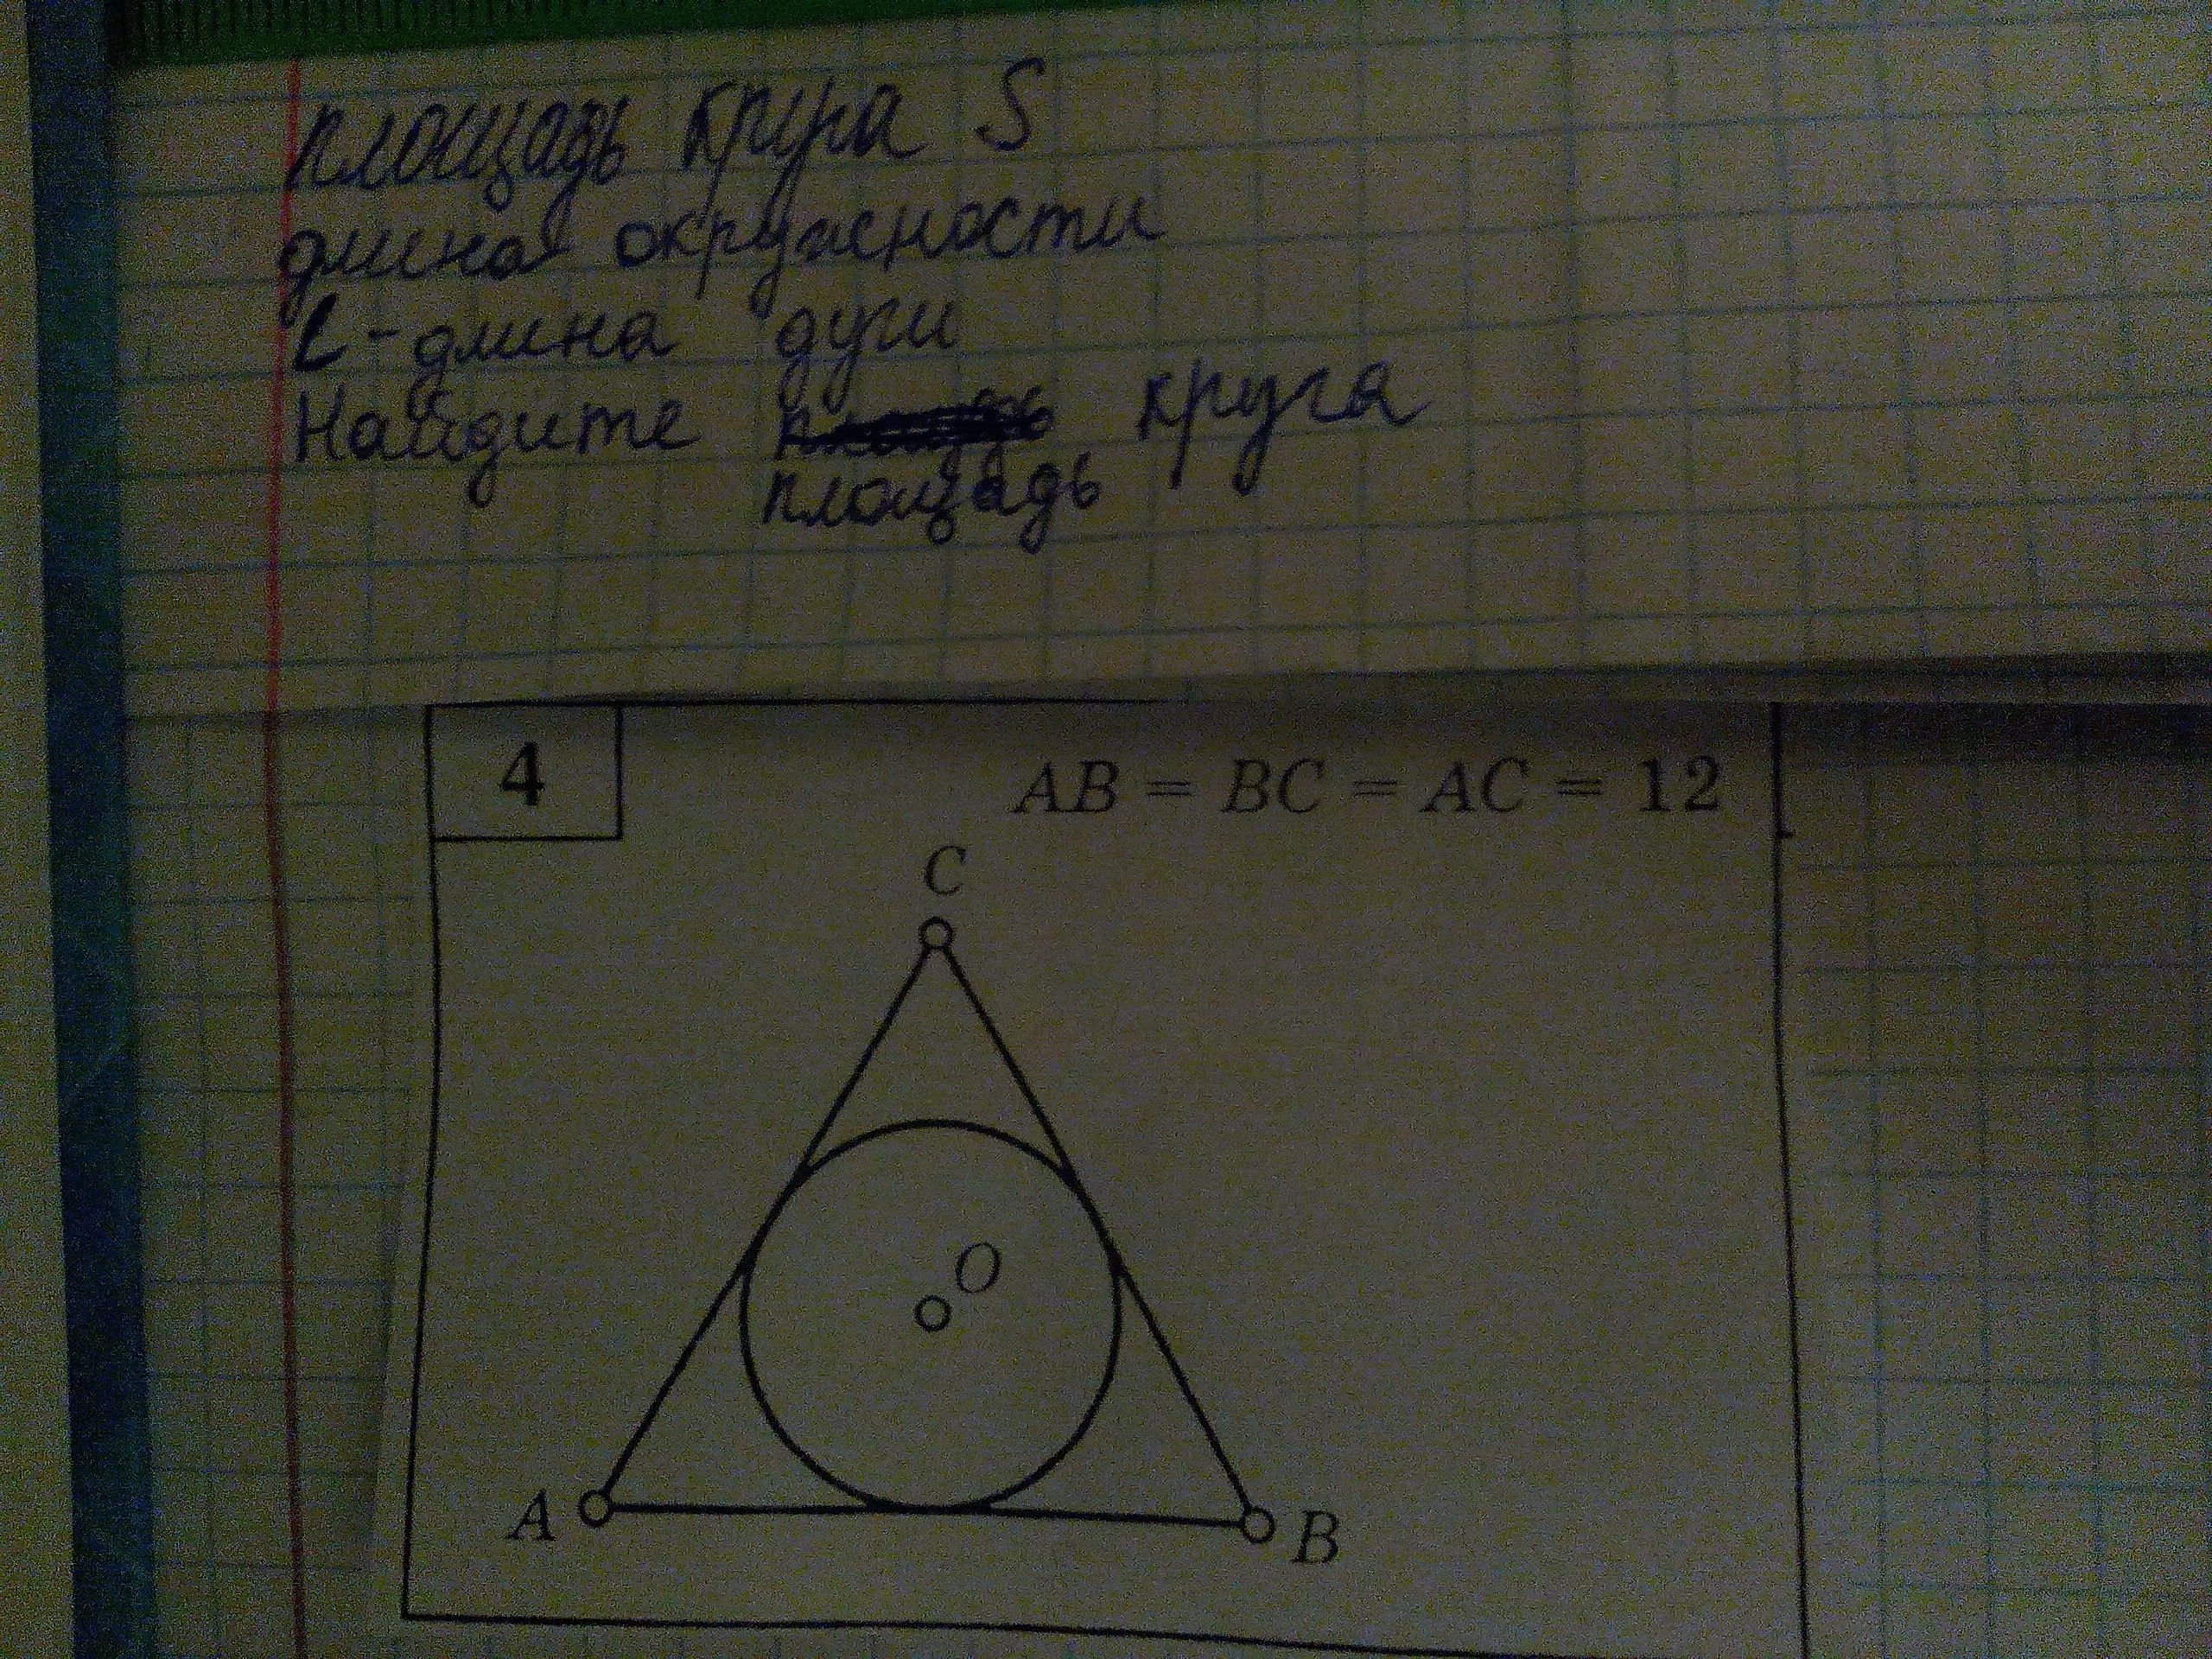 площадь круга S
длина окружности
L - длина дуги
Найдите круга
площадь
4
AB = BC = AC = 12
C
O
A
B